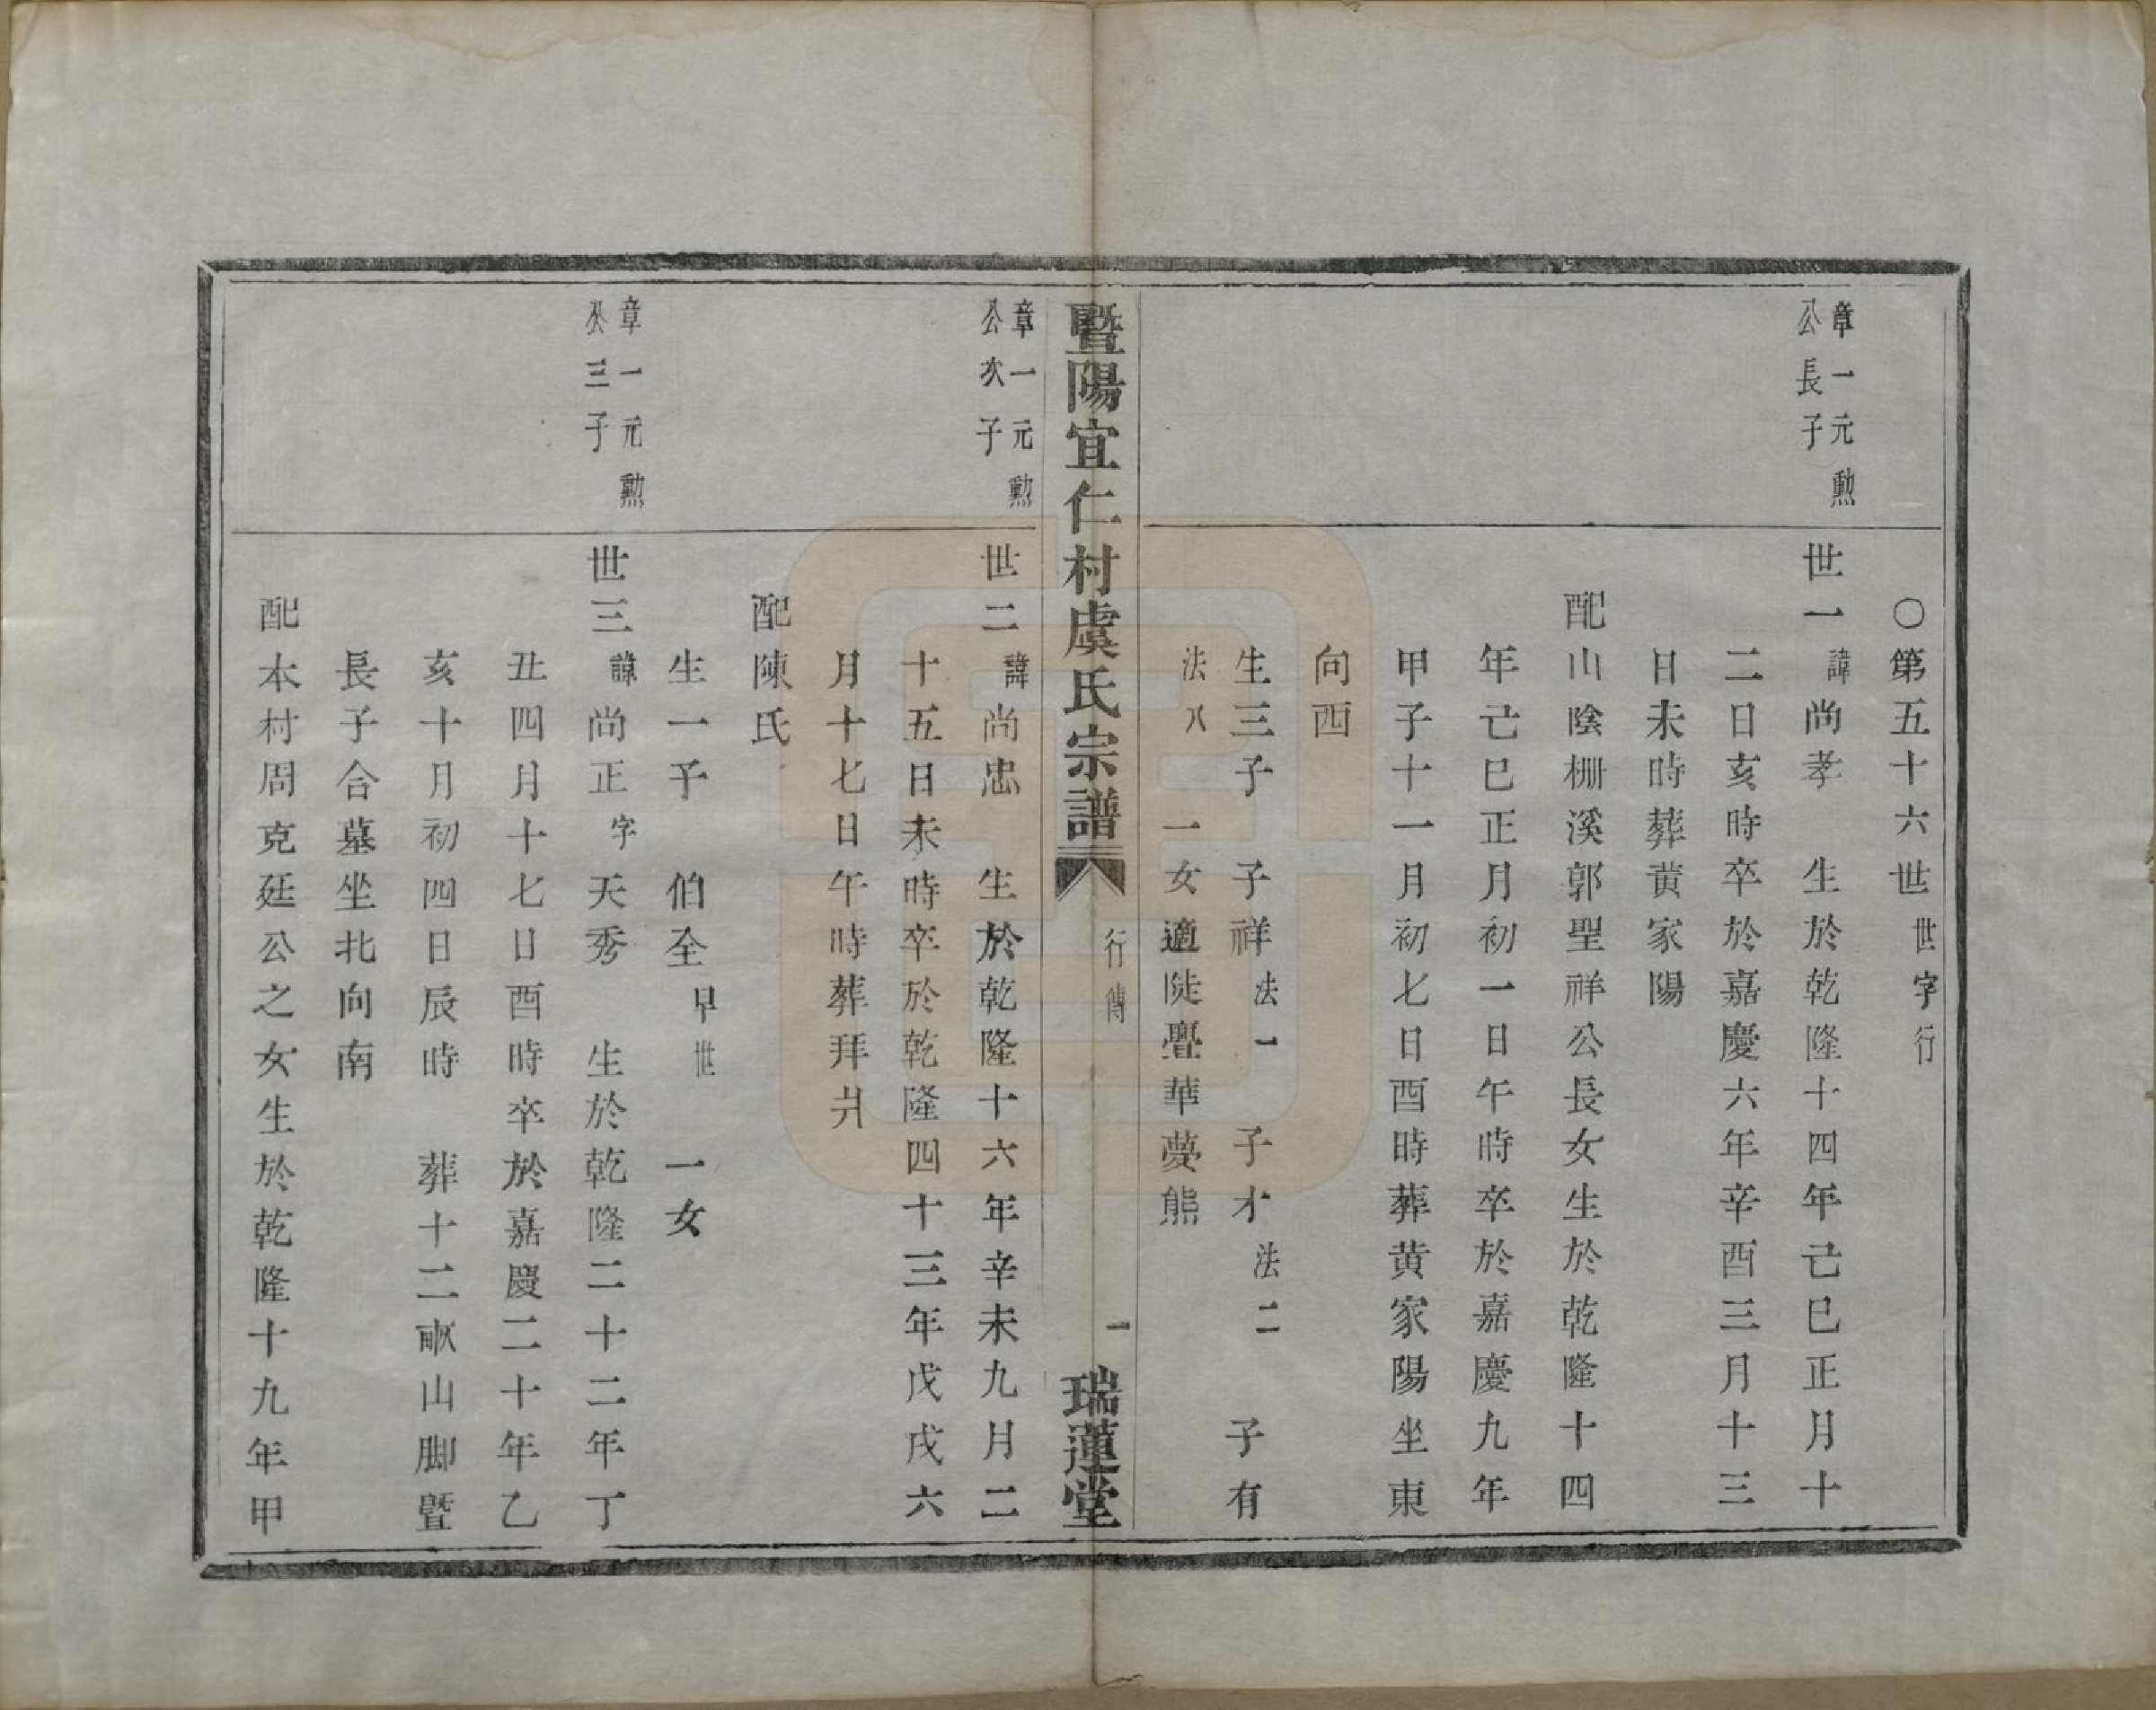 〇第五十六世世字行
章一元勲
公長子
世一諱尚孝　生於乾隆十四年己巳正月十
二日亥時卒於嘉慶六年辛酉三月十三
日未時葬黄家陽
配山陰柵溪郭聖祥公長女生於乾隆十四
年己巳正月初一日午時卒於嘉慶九年
甲子十一月初七日酉時葬黄家陽坐東
向西
生三子　子祥法一　子才法二　子有
法八　一女適陡亹華夢熊
暨陽宜仁村虞氏宗譜　行傳　一　瑞蓮堂
章一元勲
公次子
世二諱尚忠　生於乾隆十六年辛未九月二
十五日未時卒於乾隆四十三年戊戌六
月十七日午時葬拜爿
配陳氏
生一子　伯全早世　一女
章一元勲
公三子
世三諱尚正字天秀　生於乾隆二十二年丁
丑四月十七日酉時卒於嘉慶二十年乙
亥十月初四日辰時　葬十二畝山脚暨
長子合墓坐北向南
配本村周克廷公之女生於乾隆十九年甲